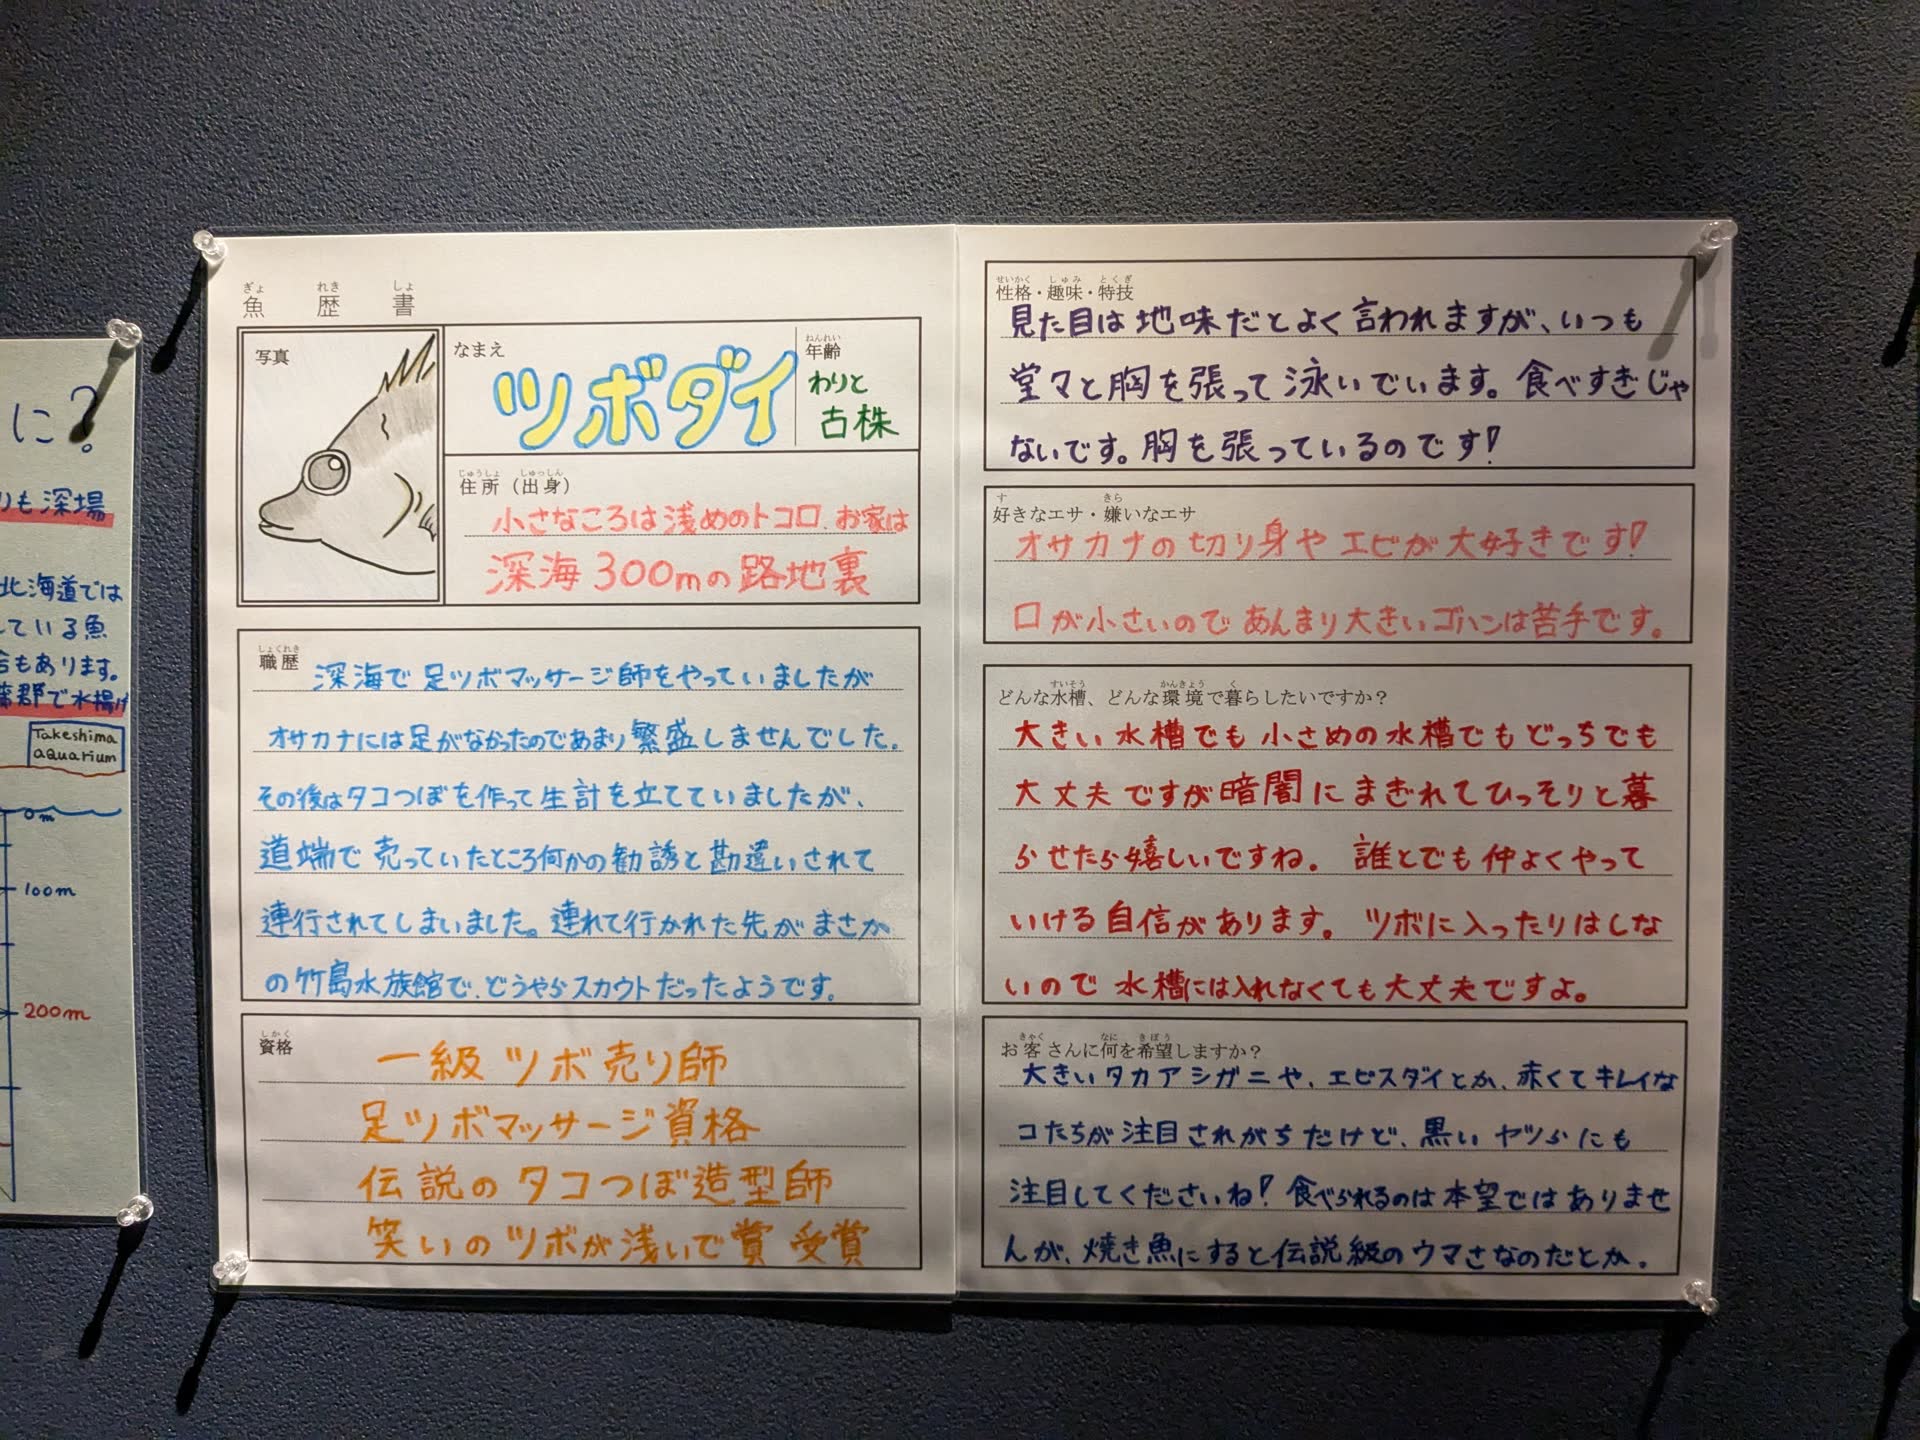 に?
りも深場
北海道では
ている魚
もあります。
郡で水揚げ
Takeshima
aquarium
0m
100m
200m
ぎょ れき しょ
魚 歴 書
写真
なまえ
ツボダイ
ねんれい
年齢
わりと
古株
じゅうしょ しゅっしん
住所(出身)
小さなころは浅めのトコロ、お家は
深海300mの路地裏
しょくれき
職歴
深海で足ツボマッサージ師をやっていましたが
オサカナには足がなかったのであまり繁盛しませんでした。
その後はタコつぼを作って生計を立てていましたが、
道端で売っていたところ何かの勧誘と勘違いされて
連行されてしまいました。連れて行かれた先がまさか
の竹島水族館で、どうやらスカウトだったようです。
しかく
資格
一級ツボ売り師
足ツボマッサージ資格
伝説のタコつぼ造型師
笑いのツボが浅いで賞 受賞
せいかく しゅみ とくぎ
性格・趣味・特技
見た目は地味だとよく言われますが、いつも
堂々と胸を張って泳いでいます。食べすぎじゃ
ないです。胸を張っているのです!
す きら
好きなエサ・嫌いなエサ
オサカナの切り身やエビが大好きです!
口が小さいのであんまり大きいゴハンは苦手です。
すいそう かんきょう く
どんな水槽、どんな環境で暮らしたいですか?
大きい水槽でも小さめの水槽でもどっちでも
大丈夫ですが暗闇にまぎれてひっそりと暮
らせたら嬉しいですね。 誰とでも仲よくやって
いける自信があります。 ツボに入ったりはしな
いので水槽には入れなくても大丈夫ですよ。
きゃく なに きぼう
お客さんに何を希望しますか?
大きいタカアシガニや、エビスダイとか、赤くてキレイな
コたちが注目されがちだけど、黒いヤツらにも
注目してくださいね!食べられるのは本望ではありませ
んが、焼き魚にすると伝説級のウマさなのだとか。